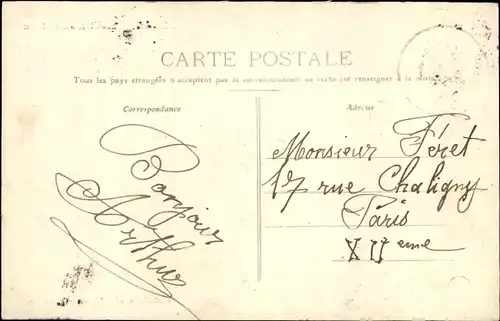 CARTE POSTALE
Tous les pays étrangers n'acceptent pas la correspondance au recto
Correspondance
Adresse
Bonjour
Arthur
Monsieur Féret
17 rue Chaligny
Paris
XII eme